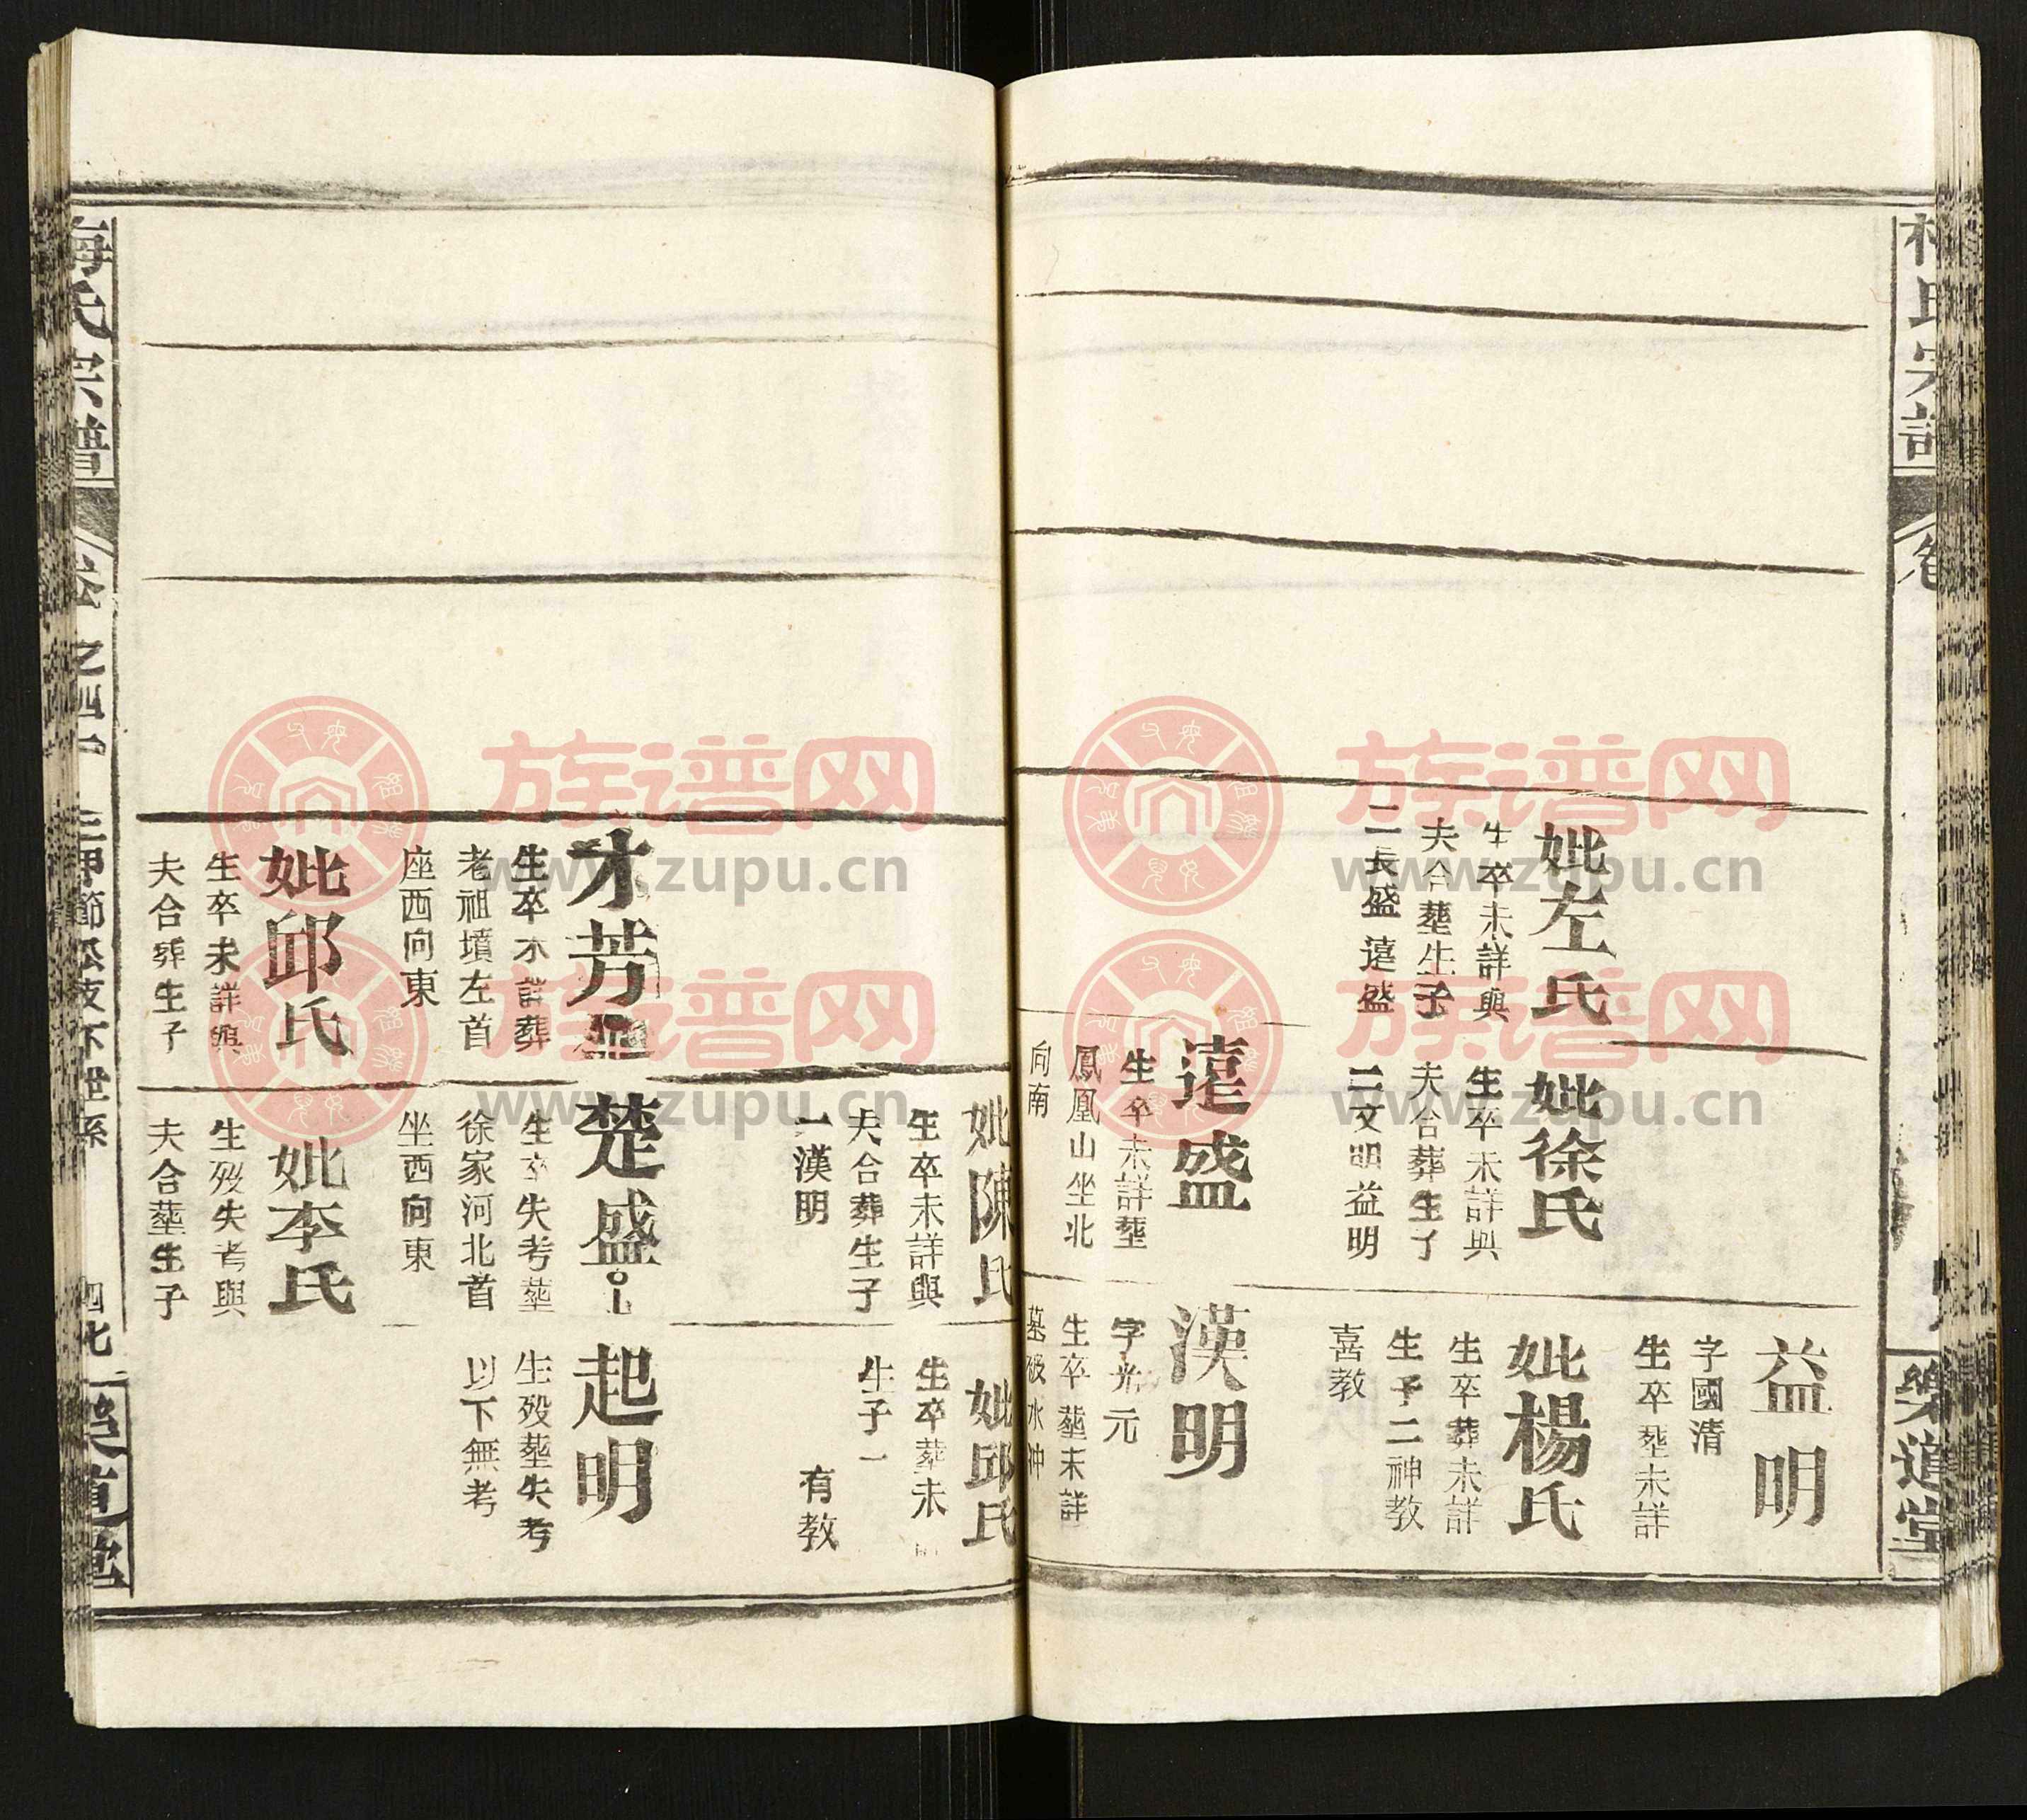 樂道堂
妣左氏
生卒未詳與
夫合塟生子
二長盛 遠盛
妣徐氏
生卒未詳與
夫合葬生子
二文明益明
益明
字國清
生卒塟未詳
妣楊氏
生卒葬未詳
生子二神教
喜教
遠盛
生卒未詳塟
鳳凰山坐北
向南
漢明
字光元
生卒塟未詳
墓破水沖
妣陳氏
生卒未詳與
夫合葬生子
一漢明
妣邱氏
生卒塟未
生子一
有教
才芳
生卒不詳葬
老祖墳左首
座西向東
妣邱氏
生卒未詳與
夫合葬生子
楚盛
生卒失考塟
徐家河北首
坐西向東
妣李氏
生歿失考與
夫合塟生子
起明
生歿塟失考
以下無考
梅氏宗譜
卷之四
節公支下世系
四七
樂道堂
族谱网
www.zupu.cn
族谱网
www.zupu.cn
族谱网
www.zupu.cn
族谱网
www.zupu.cn